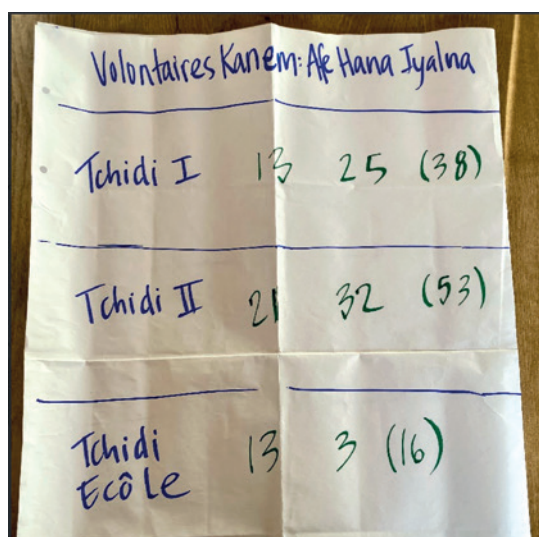 Volontaires Kanem: Afe Hana Iyalna
Tchidi I 13 25 (38)
Tchidi II 21 32 (53)
Tchidi 13 3 (16)
Ecôle